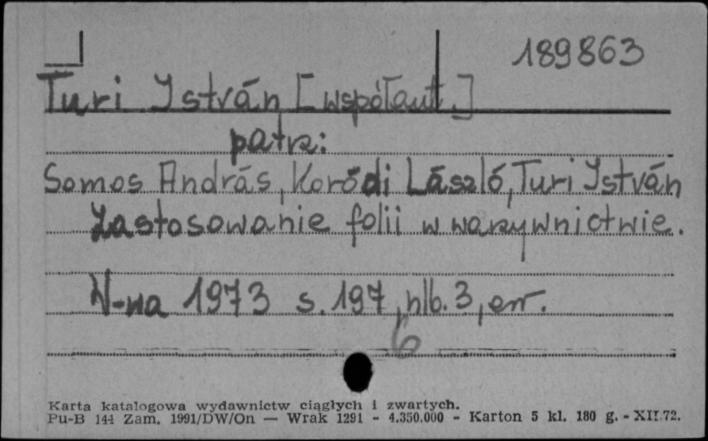 189863
Turi István [współaut.]
patrz:
Somos András, Koródi László, Turi István
Zastosowanie folii w warzywnictwie.
W-wa 1973 s. 197, nlb. 3, err.
6
Karta katalogowa wydawnictw ciągłych i zwartych.
Pu-B 144 Zam. 1991/DW/On — Wrak 1291 - 4.350.000 - Karton 5 kl. 180 g. - XII.72.